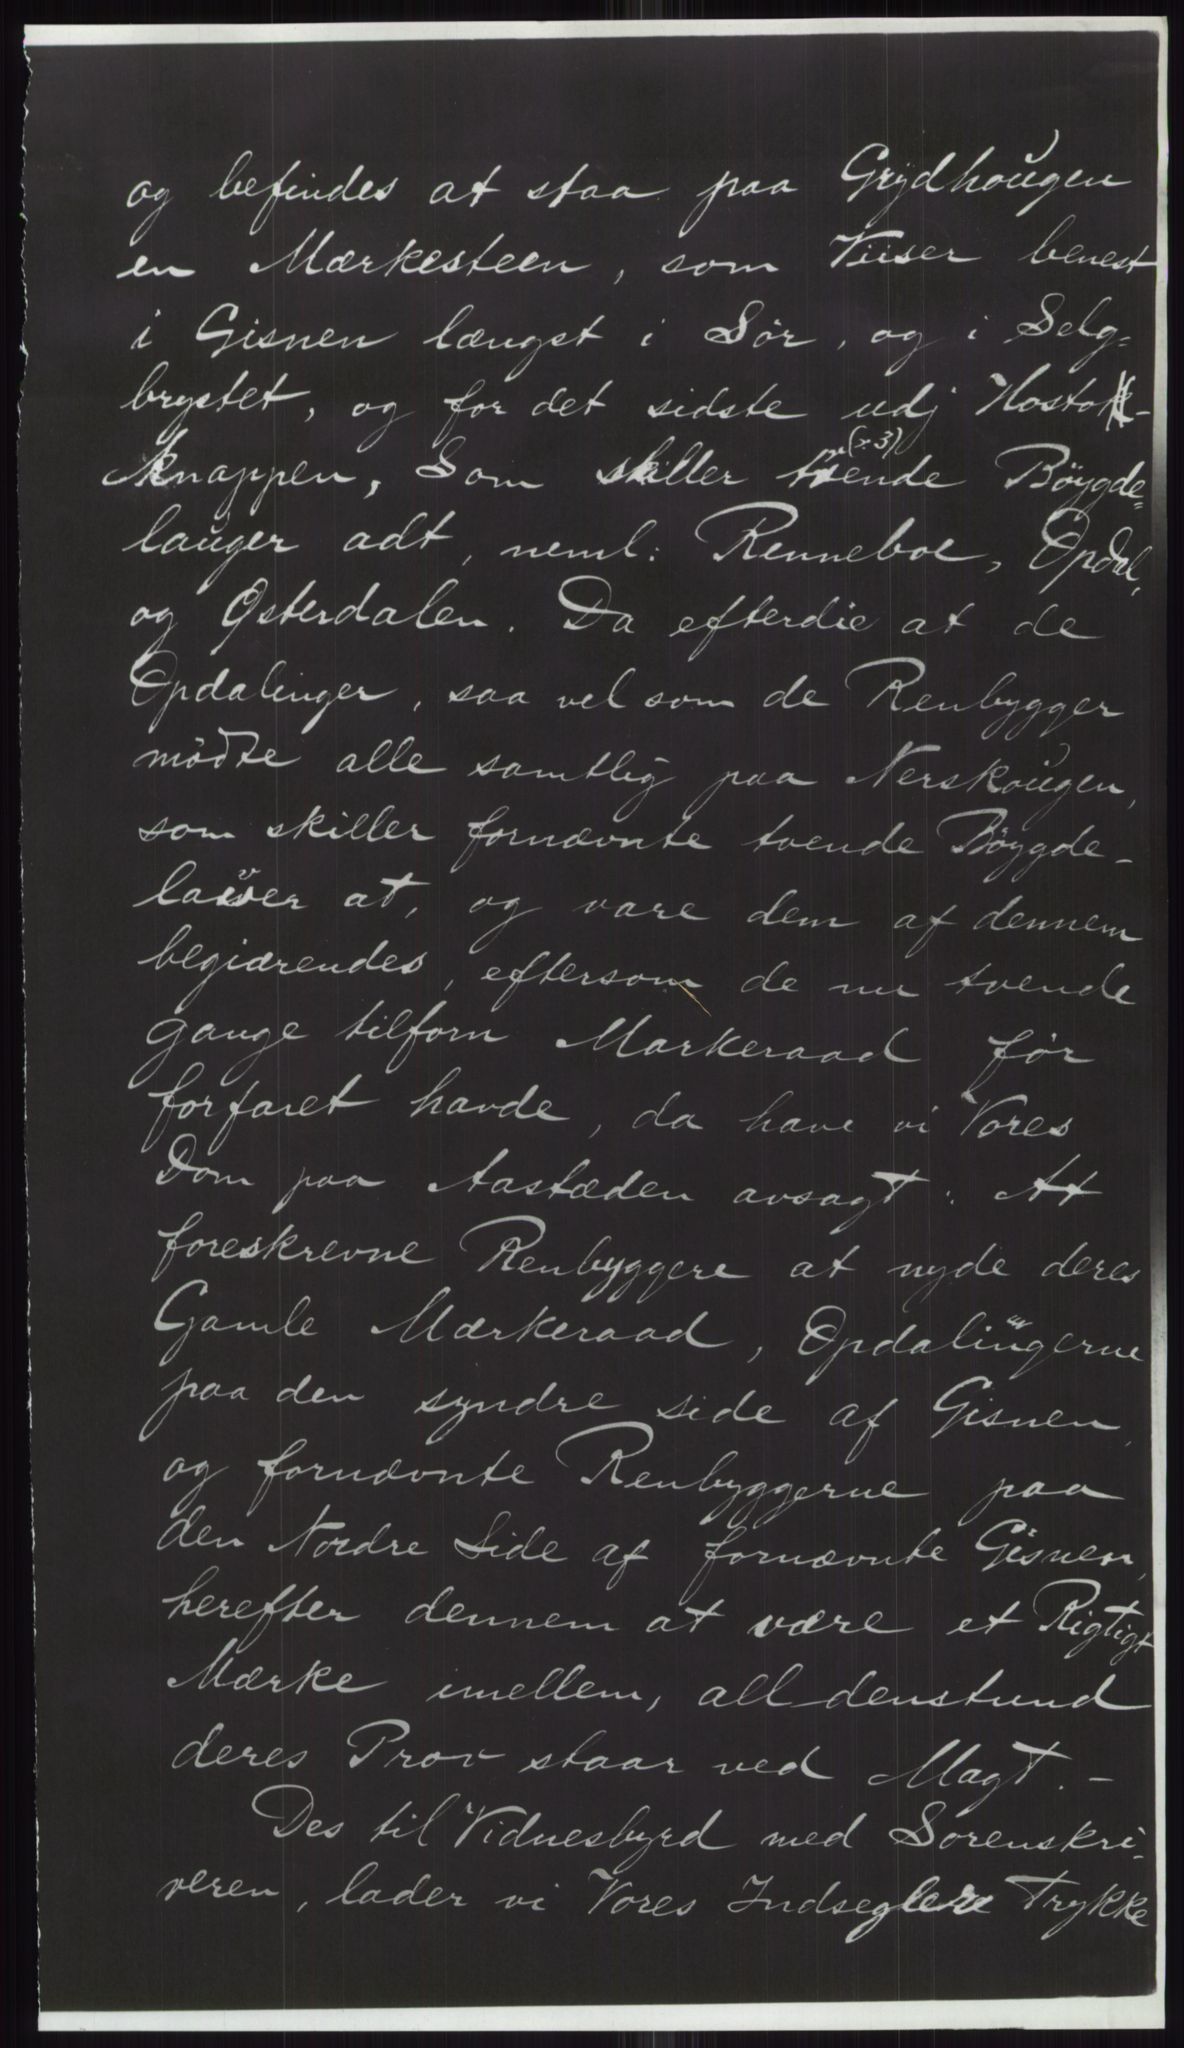 og befindes at staa paa Grÿdhoŭgen
en Mærkesteen, som Viiser benest
i Gisnen længst i Sør, og i Selg=
brystet, og for det sidste udj Hosto-
knappen, Som skiller tvende (: 3) Böygde=
lauger adt, neml: Renneboe, Opdal,
og Østerdalen. Da efterdie at de
Opdalinger, saa vel som de Renbygger
mödte alle samtlig paa Nerskoŭgen,
som skiller fornævnte tvende Böygde-
lauer at, og vare dem af dennem
begiærendes, eftersom de nu tvende
gange tilforn Markeraad før
forfaret havde, da have vi Vores
Dom paa Aastæden avsagt: At
foreskrevne Renbyggere at nyde deres
Gamle Mærkeraad, Opdalingerne
paa den syndre side af Gisnen,
og fornævnte Renbyggerne paa
den Nordre Side af fornævnte Gisnen,
herefter dennem at være et Rigtigt
Mærke imellem, all denstund
deres Prov staar ved Magt. -
Des til Vidnesbyrd med Sorenskri-
veren, lader vi Vores Indseglere Trykke